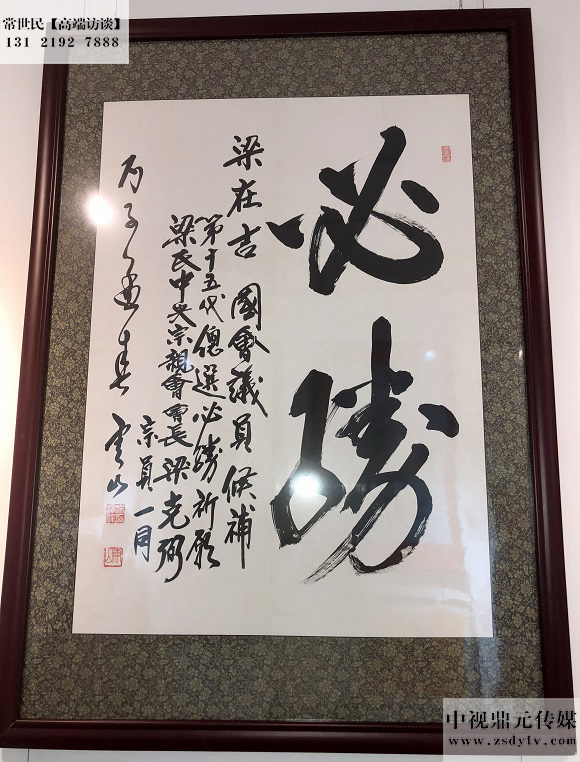 常世民【高端访谈】
131 2192 7888
必勝
梁在吉 國會議員候補
第十五代總選必勝祈願
梁氏中央宗親會會長 梁克弼
宗員一同
丙子孟春 雲山
中视鼎元传媒
www.zsdytv.com